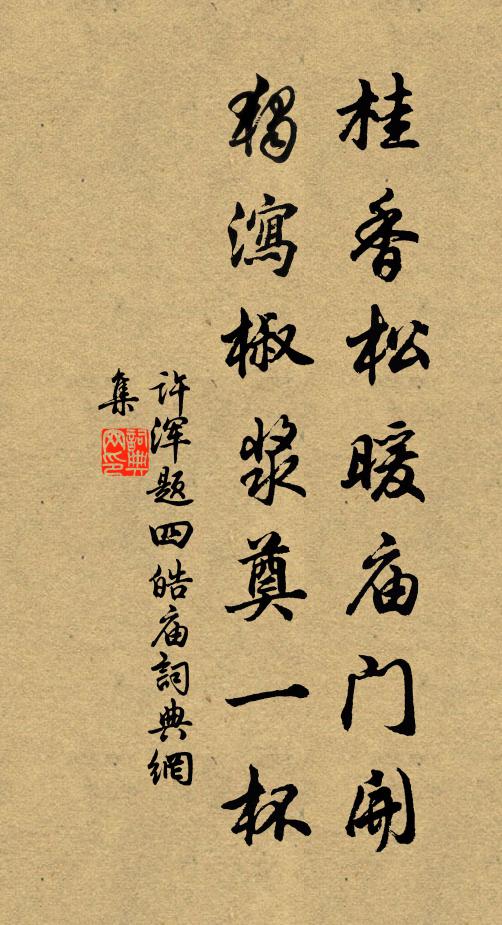 桂香松暖庙门开
独泻椒浆奠一杯
许浑题四皓庙詞典網
集
詞典網印